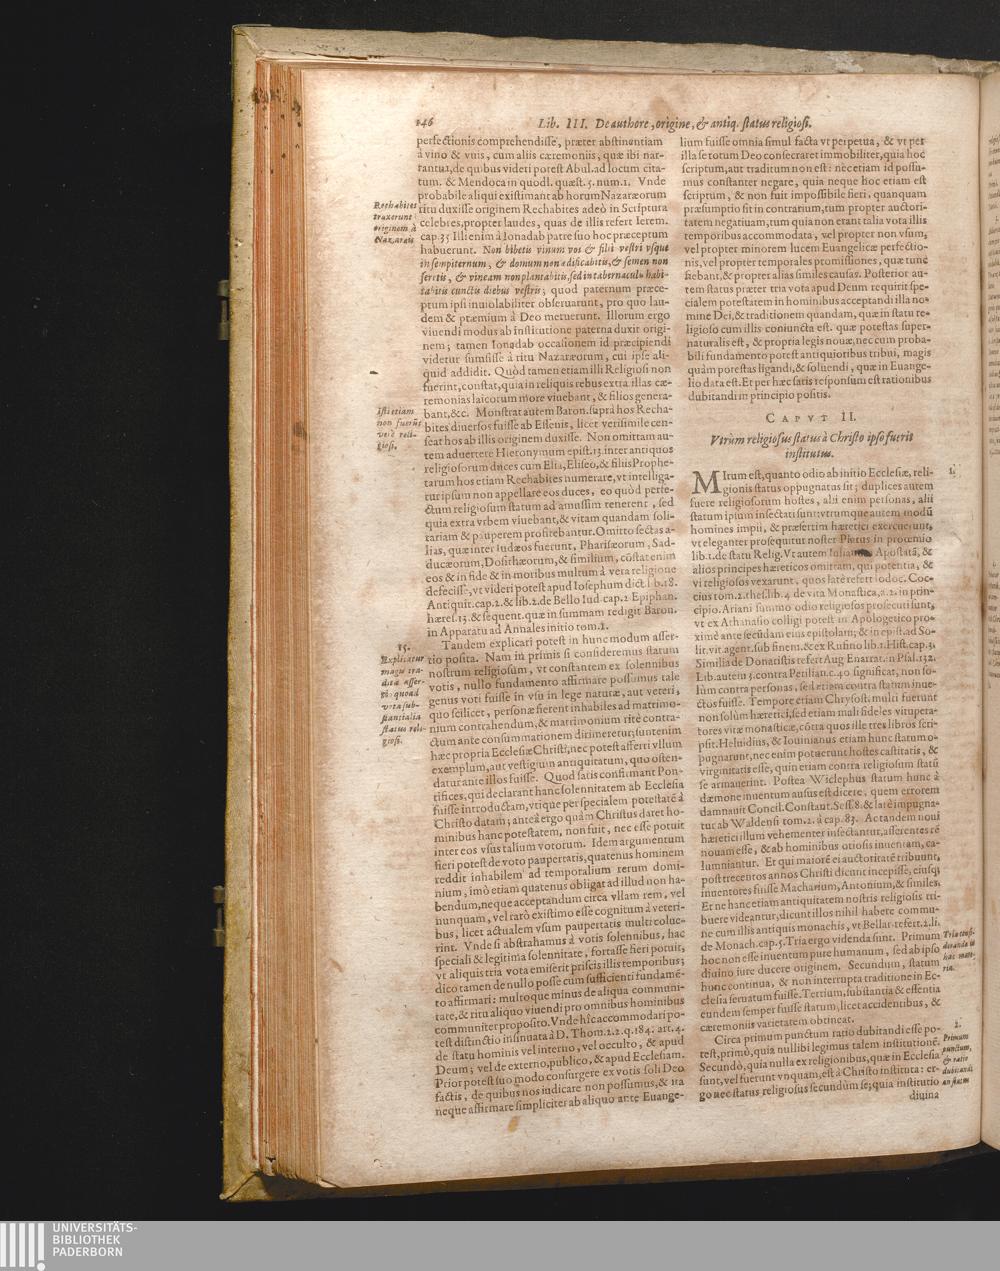 246
Lib. III. De authore, origine, & antiq. status religiosi.
perfectionis comprehendisse, præter abstinentiam
à vino & vuis, cum aliis cæremoniis, quæ ibi nar-
rantur, de quibus videri potest Abul. ad locum cita-
tum. & Mendoca in quodl. quæst. 5. num. 1. Vnde
probabile aliqui existimant ab horum Nazaræorum
ritu duxisse originem Rechabites adeò in Scriptura
celebres, propter laudes, quas de illis refert Ierem.
cap. 35 Illi enim à Ionadab patre suo hoc præceptum
habuerunt. Non bibetis vinum vos & filii vestri vsque
in sempiternum, & domum non ædificabitis, & semen non
seretis, & vineam non plantabitis, sed in tabernaculis habi-
tabitis cunctis diebus vestris; quod paternum præce-
ptum ipsi inuiolabiliter obseruarunt, pro quo lau-
dem & præmium à Deo meruerunt. Illorum ergo
viuendi modus ab institutione paterna duxit origi-
nem; tamen Ionadab occasionem id præcipiendi
videtur sumsisse à ritu Nazaræorum, cui ipse ali-
quid addidit. Quòd tamen etiam illi Religiosi non
fuerint, constat, quia in reliquis rebus extra illas cæ-
remonias laicorum more viuebant, & filios genera-
bant, &c. Monstrat autem Baron. suprà hos Recha-
bites diuersos fuisse ab Essenis, licet verisimile cen-
seat hos ab illis originem duxisse. Non omittam au-
tem aduertere Hieronymum epist. 13. inter antiquos
religiosorum duces cum Elia, Eliseo, & filiis Prophe-
tarum hos etiam Rechabites numerare, vt intelliga-
tur ipsum non appellare eos duces, eo quòd perfe-
ctum religiosum statum ad amussim tenerent, sed
quia extra vrbem viuebant, & vitam quandam soli-
tariam & pauperem profitebantur. Omitto sectas a-
lias, quæ inter Iudæos fuerunt, Pharisæorum, Sad-
ducæorum, Dosithæorum, & similium, cõstat enim
eos & in fide & in moribus multum à vera religione
defecisse, vt videri potest apud Iosephum dict. lib. 18.
Antiquit. cap. 2. & lib. 2. de Bello Iud. cap. 2 Epiphan.
hæres. 13. & sequent. quæ in summam redigit Baron.
in Apparatu ad Annales initio tom. 1.
Tandem explicari potest in hunc modum asser-
tio posita. Nam in primis si consideremus statum
nostrum religiosum, vt constantem ex solennibus
votis, nullo fundamento affirmare possumus tale
genus voti fuisse in vsu in lege naturæ, aut veteri,
quo scilicet, personæ fierent inhabiles ad matrimo-
nium contrahendum, & matrimonium ritè contra-
ctum ante consummationem dirimeretur; sunt enim
hæc propria Ecclesiæ Christi, nec potest asserri vllum
exemplum, aut vestigium antiquitatum, quo osten-
datur ante illos fuisse. Quod satis confirmant Pon-
tifices, qui declarant hanc solennitatem ab Ecclesia
fuisse introductam, vtique per specialem potestatẽ à
Christo datam; anteà ergo quàm Christus daret ho-
minibus hanc potestatem, non fuit, nec esse potuit
inter eos vsus talium votorum. Idem argumentum
fieri potest de voto paupertatis, quatenus hominem
reddit inhabilem ad temporalium rerum domi-
nium, imò etiam quatenus obligat ad illud non ha-
bendum, neque acceptandum circa vllam rem, vel
nunquam, vel rarò existimo esse cognitum à veteri-
bus, licet actualem vsum paupertatis multi colue-
rint. Vnde si abstrahamus à votis solennibus, hac
speciali & legitima solennitate, fortasse fieri potuit,
vt aliquis tria vota emiserit priscis illis temporibus;
dico tamen de nullo posse cum sufficienti fundamẽ-
to affirmari: multoque minus de aliqua communi-
tate, & ritu aliquo viuendi pro omnibus hominibus
communiter proposito. Vnde hîc accommodari po-
test distinctio insinuata à D. Thom. 2. 2. q. 184. art. 4.
de statu hominis vel interno, vel occulto, & apud
Deum; vel de externo, publico, & apud Ecclesiam.
Prior potest suo modo consurgere ex votis soli Deo
factis, de quibus nos iudicare non possumus, & ita
neque affirmare simpliciter ab aliquo ante Euange-
Rechabites
traxerunt
originem à
Nazaræis
Isti etiam
non fuerũt
verè reli-
giosi.
15.
Explicatur
magis tra-
dita asser-
tio quoad
vota sub-
stantialia
status reli-
giosi.
lium fuisse omnia simul facta vt perpetua, & vt per
illa se totum Deo consecraret immobiliter, quia hoc
scriptum, aut traditum non est: nec etiam id possu-
mus constanter negare, quia neque hoc etiam est
scriptum, & non fuit impossibile fieri, quanquam
præsumptio sit in contrarium, tum propter auctori-
tatem negatiuam, tum quia non erant talia vota illis
temporibus accommodata, vel propter non vsum,
vel propter minorem lucem Euangelicæ perfectio-
nis, vel propter temporales promissiones, quæ tunc
fiebant, & propter alias similes causas. Posterior au-
tem status præter tria vota apud Deum requirit spe-
cialem potestatem in hominibus acceptandi illa no-
mine Dei, & traditionem quandam, quæ in statu re-
ligioso cum illis coniuncta est. quæ potestas super-
naturalis est, & propria legis nouæ, nec cum proba-
bili fundamento potest antiquioribus tribui, magis
quàm potestas ligandi, & soluendi, quæ in Euange-
lio data est. Et per hæc satis responsum est rationibus
dubitandi in principio positis.
CAPVT II.
Vtrùm religiosus status à Christo ipso fuerit
institutus.
MIrum est, quanto odio ab initio Ecclesiæ, reli-
gionis status oppugnatus sit; duplices autem
fuere religiosorum hostes, alii enim personas, alii
statum ipsum insectati sunt: vtrumque autem modũ
homines impii, & præsertim hæretici exercuerunt,
vt eleganter prosequitur noster Platus in proœmio
lib. 1. de statu Relig. Vt autem Iulianum Apostatã, &
alios principes hæreticos omittam, qui potentia, &
vi religiosos vexarunt, quos latè refert Iodoc. Coc-
cius tom. 2. thes. lib. 4 de vita Monastica, a. 2. in prin-
cipio. Ariani summo odio religiosos prosecuti sunt,
vt ex Athanasio colligi potest in Apologetico pro-
ximè ante secũdam eius epistolam; & in epist. ad So-
lit. vit. agent. sub finem. & ex Rufino lib. 1. Hist. cap. 3.
Similia de Donatistis refert Aug Enarrat. in Psal. 132.
Lib. autem 3. contra Petilian. c. 40 significat, non so-
lùm contra personas, sed etiam contra statum inue-
ctos fuisse. Tempore etiam Chrysost. multi fuerunt
non solùm hæretici, sed etiam mali fideles vitupera-
tores vitæ monasticæ, cõtra quos ille tres libros scri-
psit. Heluidius, & Iouinianus etiam hunc statum o-
pugnarunt, nec enim potuerunt hostes castitatis, &
virginitatis esse, quin etiam contra religiosum statũ
se armauerint. Postea Wiclephus statum hunc à
dæmone inuentum ausus est dicere, quem errorem
damnauit Concil. Constant. Sess. 8. & latè impugna-
tur ab Waldensi tom. 2. à cap. 83. Ac tandem noui
hæretici illum vehementer insectantur, asserentes rẽ
nouam esse, & ab hominibus otiosis inuentam, ca-
lumniantur. Et qui maiorẽ ei auctoritatẽ tribuunt,
post trecentos annos Christi dicunt incepisse, eiusq;
inuentores fuisse Macharium, Antonium, & similes.
Et ne hanc etiam antiquitatem nostris religiosis tri-
buere videantur, dicunt illos nihil habere commu-
ne cum illis antiquis monachis, vt Bellar. refert. 2. li.
de Monach. cap. 5. Tria ergo videnda sunt. Primum
hoc non esse inuentum pure humanum, sed ab ipso
diuino iure ducere originem. Secundum, statum
hunc continua, & non interrupta traditione in Ec-
clesia seruatum fuisse. Tertium, substantia & essentia
eundem semper fuisse statum, licet accidentibus, &
cæremoniis varietatem obtineat.
Circa primum punctum ratio dubitandi esse po-
test, primò, quia nullibi legimus talem institutionẽ.
Secundò, quia nulla ex religionibus, quæ in Ecclesia
sunt, vel fuerunt vnquam, est à Christo instituta: er-
go nec status religiosus secundùm se; quia institutio
diuina
1.
Tria consi-
deranda in
hac mate-
ria.
2.
Primum
punctum,
& ratio
dubitandi
an status
UNIVERSITÄTS-
BIBLIOTHEK
PADERBORN